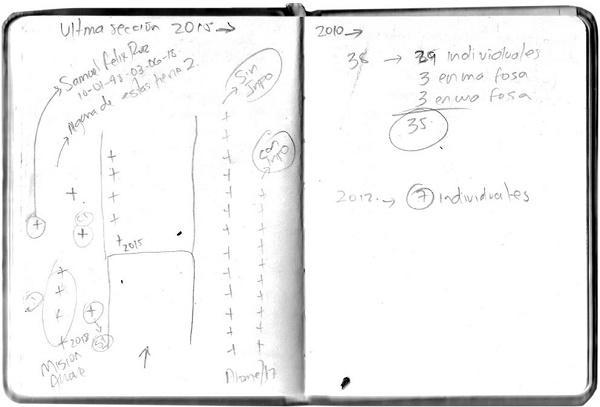 Ultma sección 2015→
Samuel Felix Ruiz
10-01-93-03-06-18
Alguna de estas tenia 2.
Sin
Info
Con
Info
2015
2018
Mision
2010→
38 → 29 individuales
3 en una fosa
3 en una fosa
35
2012 → 7 individuales